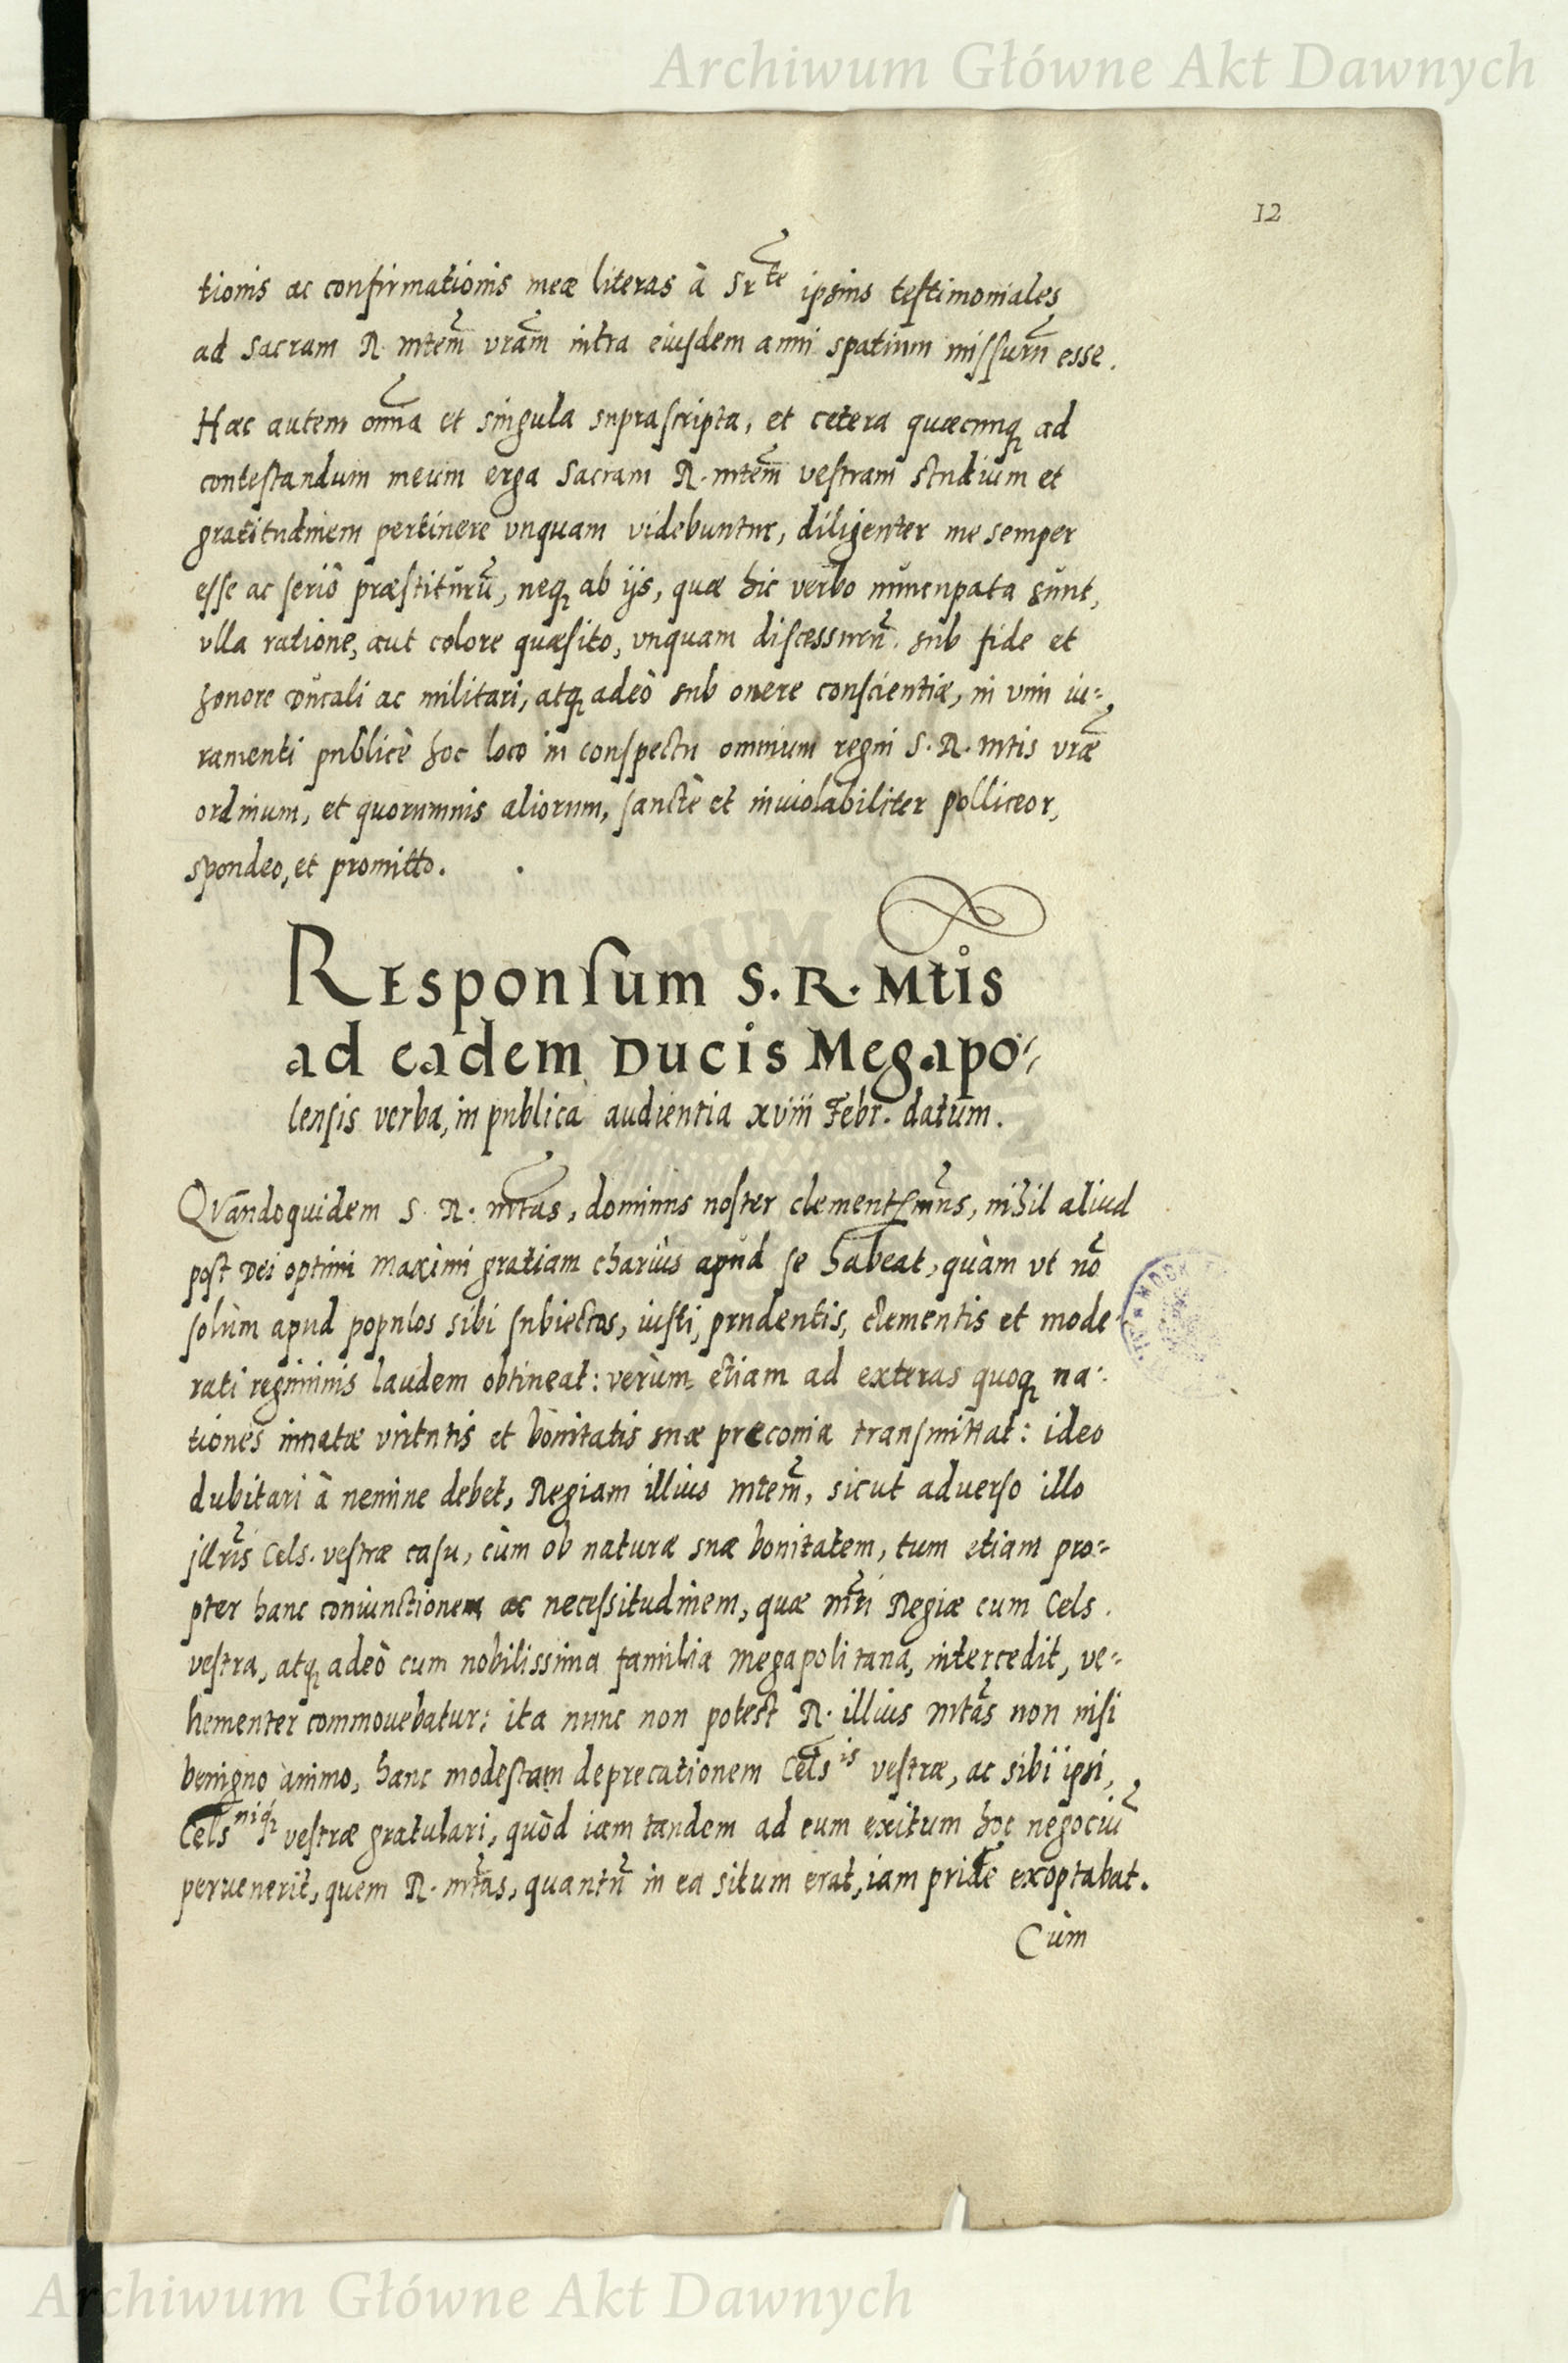 Archiwum Główne Akt Dawnych
12
tionis ac confirmationis meæ literas à Srte ipsius testimoniales
ad Sacram R. mtem vram intra eiusdem anni spatium missurū esse.
Hæc autem omnia et singula suprascripta, et cetera quæcunq ad
contestandum meum erga Sacram R. mtem vestram studium et
gratitudinem pertinere vnquam videbuntur, diligenter me semper
esse ac seriò præstiturū, neq ab ijs, quæ hic verbo nuncupata sunt,
vlla ratione, aut colore quæsito, vnquam discessurū. sub fide et
honore ducali ac militari, atq adeò sub onere conscientiæ, in vim iu=
ramenti publicè hoc loco in conspectu omnium regni S. R. mtis vræ
ordinum, et quorumuis aliorum, sanctè et inuiolabiliter polliceor,
spondeo, et promitto.
Responsum S. R. Mtis
ad eadem Ducis Megapo=
lensis verba, in publica audientia xviii Febr. datum.
Qvandoquidem S. R. mtas, dominus noster clementissimus, nihil aliud
post Dei optimi Maximi gratiam charius apud se habeat, quàm vt nō
solùm apud populos sibi subiectos, iusti, prudentis, clementis et mode
rati regiminis laudem obtineat: verùm etiam ad exteras quoq na=
tiones innatæ virtutis et bonitatis suæ præconia transmittat: ideo
dubitari à nemine debet, Regiam illius mtem, sicut aduerso illo
jllris Cels. vestræ casu, cùm ob naturæ suæ bonitatem, tum etiam pro=
pter hanc coniunctionem ac necessitudinem, quæ mti Regiæ cum Cels.
vestra, atq adeò cum nobilissima familia Megapolitana, intercedit, ve=
hementer commouebatur: ita nunc non potest R. illius mtas non nisi
benigno animo, hanc modestam deprecationem Celsis vestræ, ac sibi ipsi,
Celsniq vestræ gratulari, quòd iam tandem ad eum exitum hoc negociū
peruenerit, quem R. mtas, quantū in ea situm erat, iam pridē exoptabat.
Cùm
Archiwum Główne Akt Dawnych